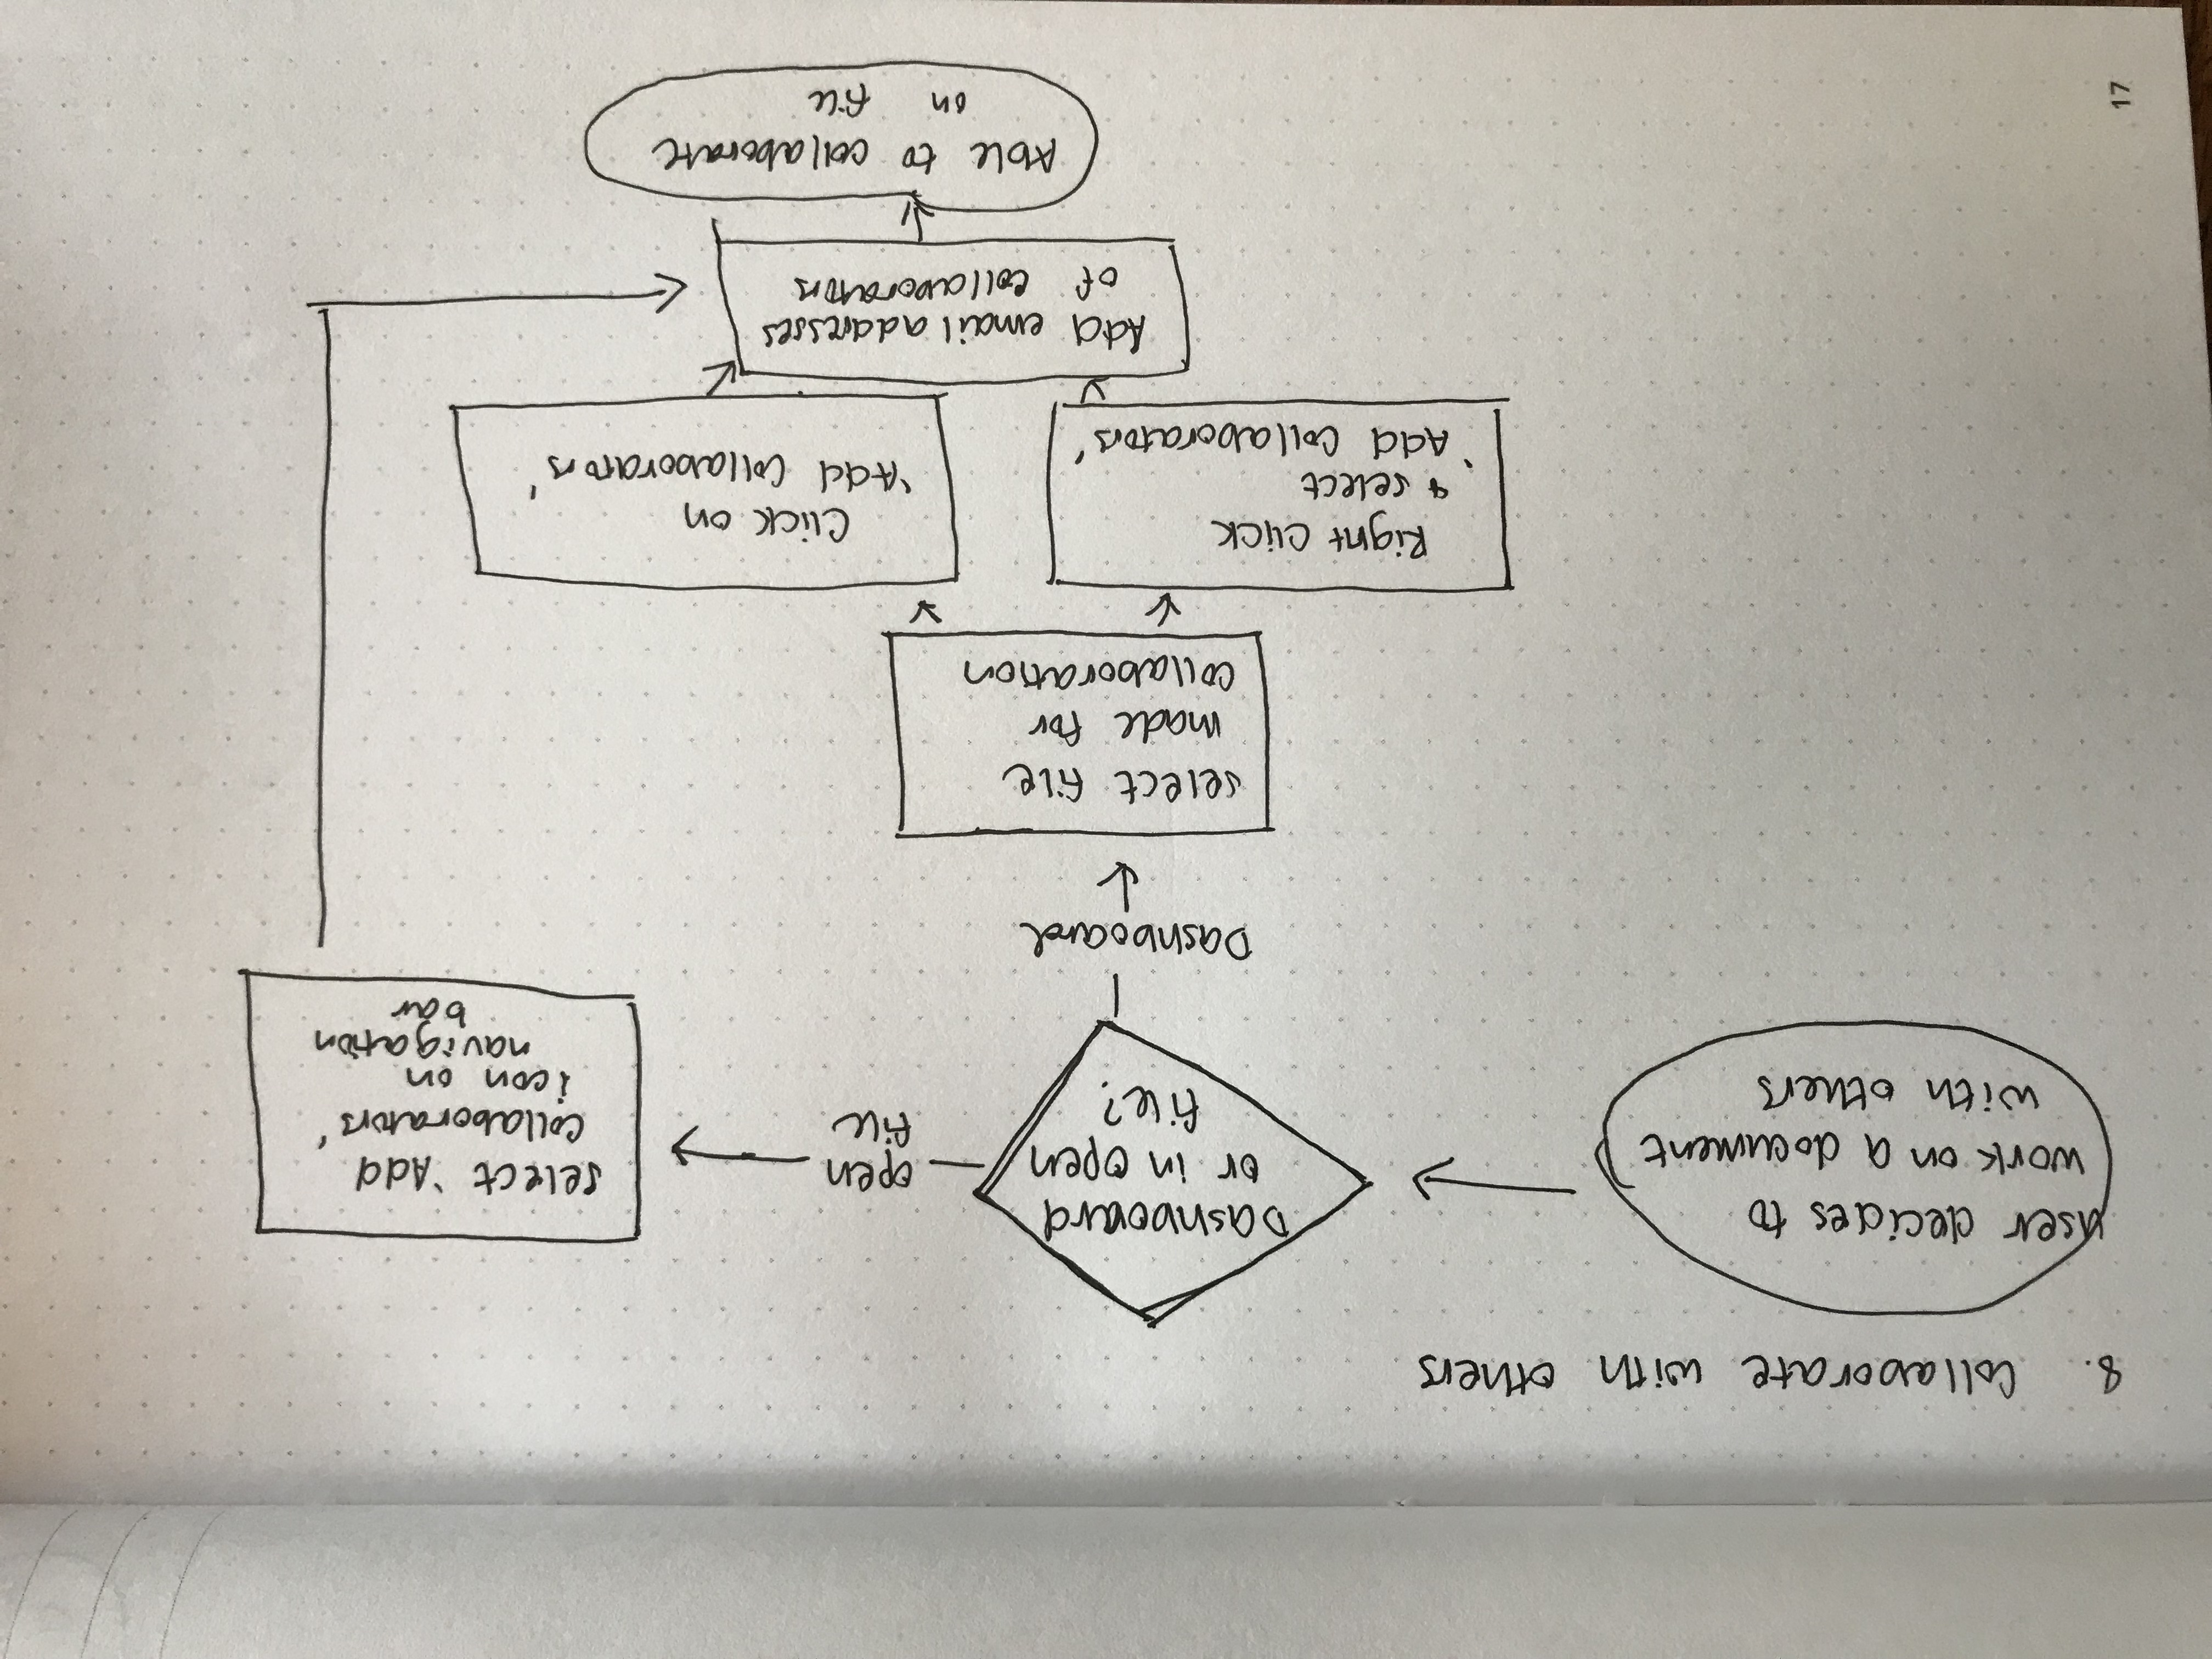 8. Collaborate with others
user decides to
work on a document
with others
Dashboard
or in open
file?
open
file
select 'Add
Collaborators'
icon on
navigation
bar
Dashboard
select file
made for
collaboration
Right Click
& select
'Add Collaborators'
Click on
'Add Collaborators'
Add email addresses
of collaborators
Able to collaborate
on file
17